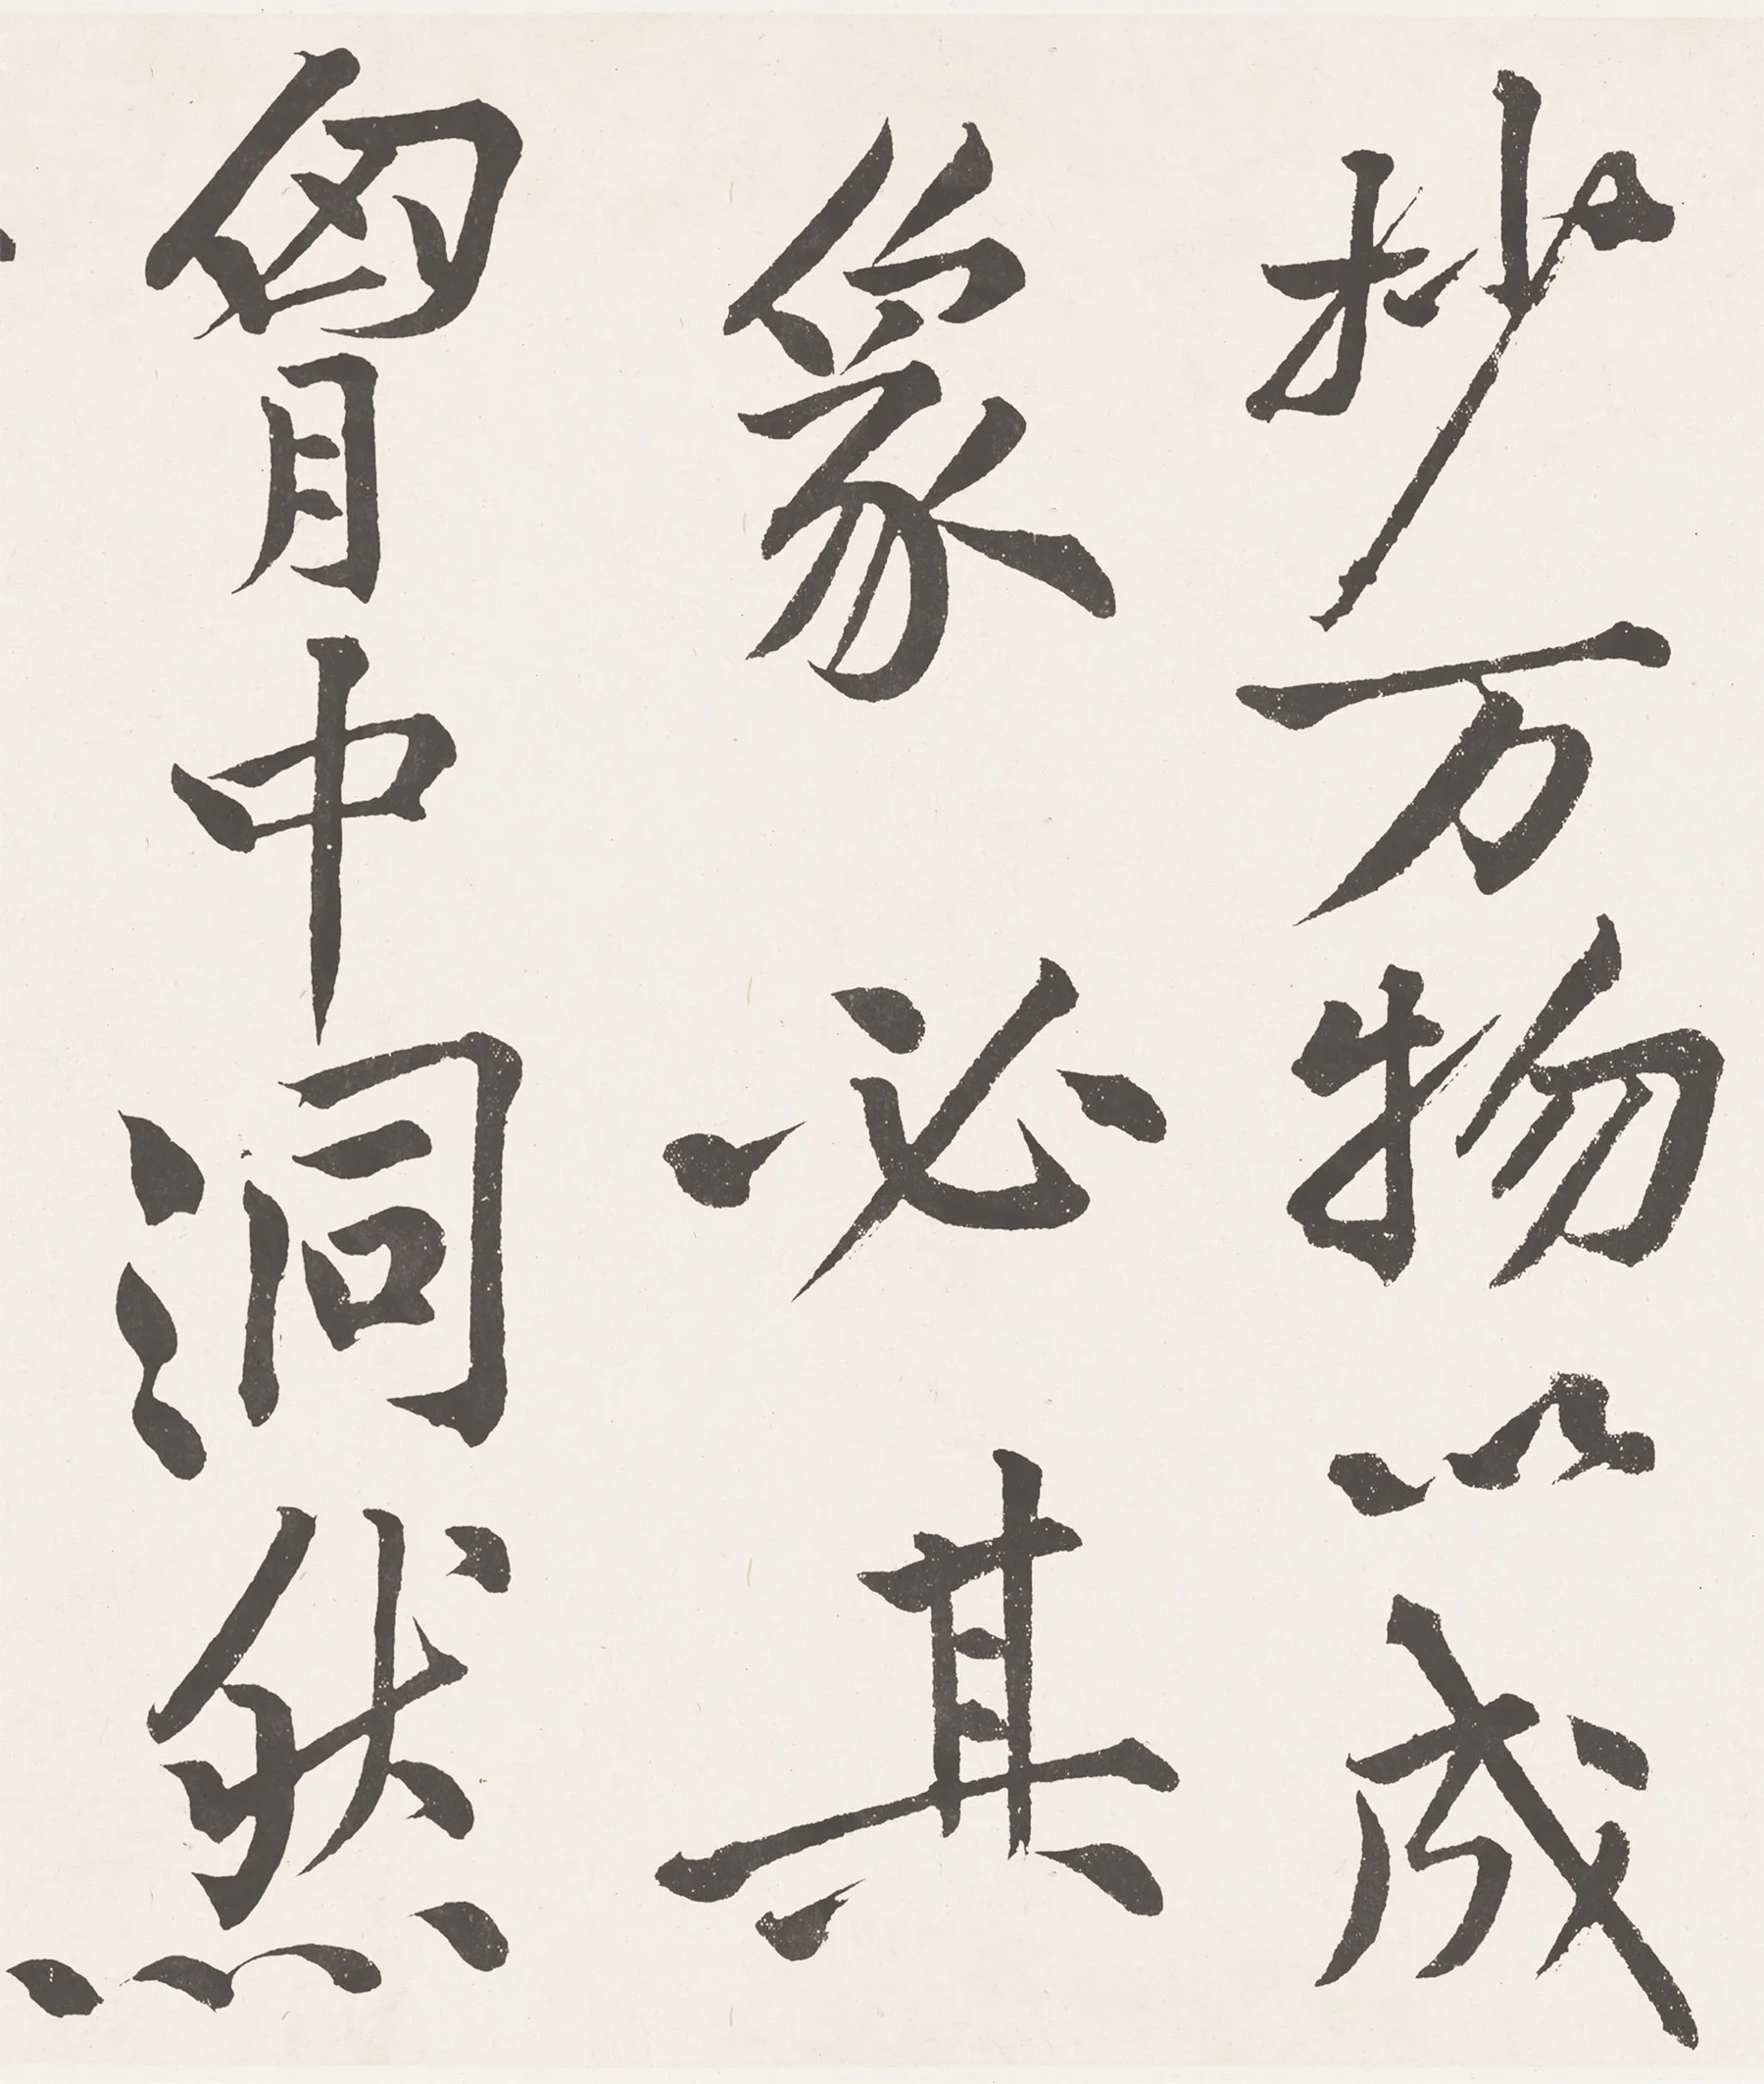 抄万物以成
象必其
胷中洞然